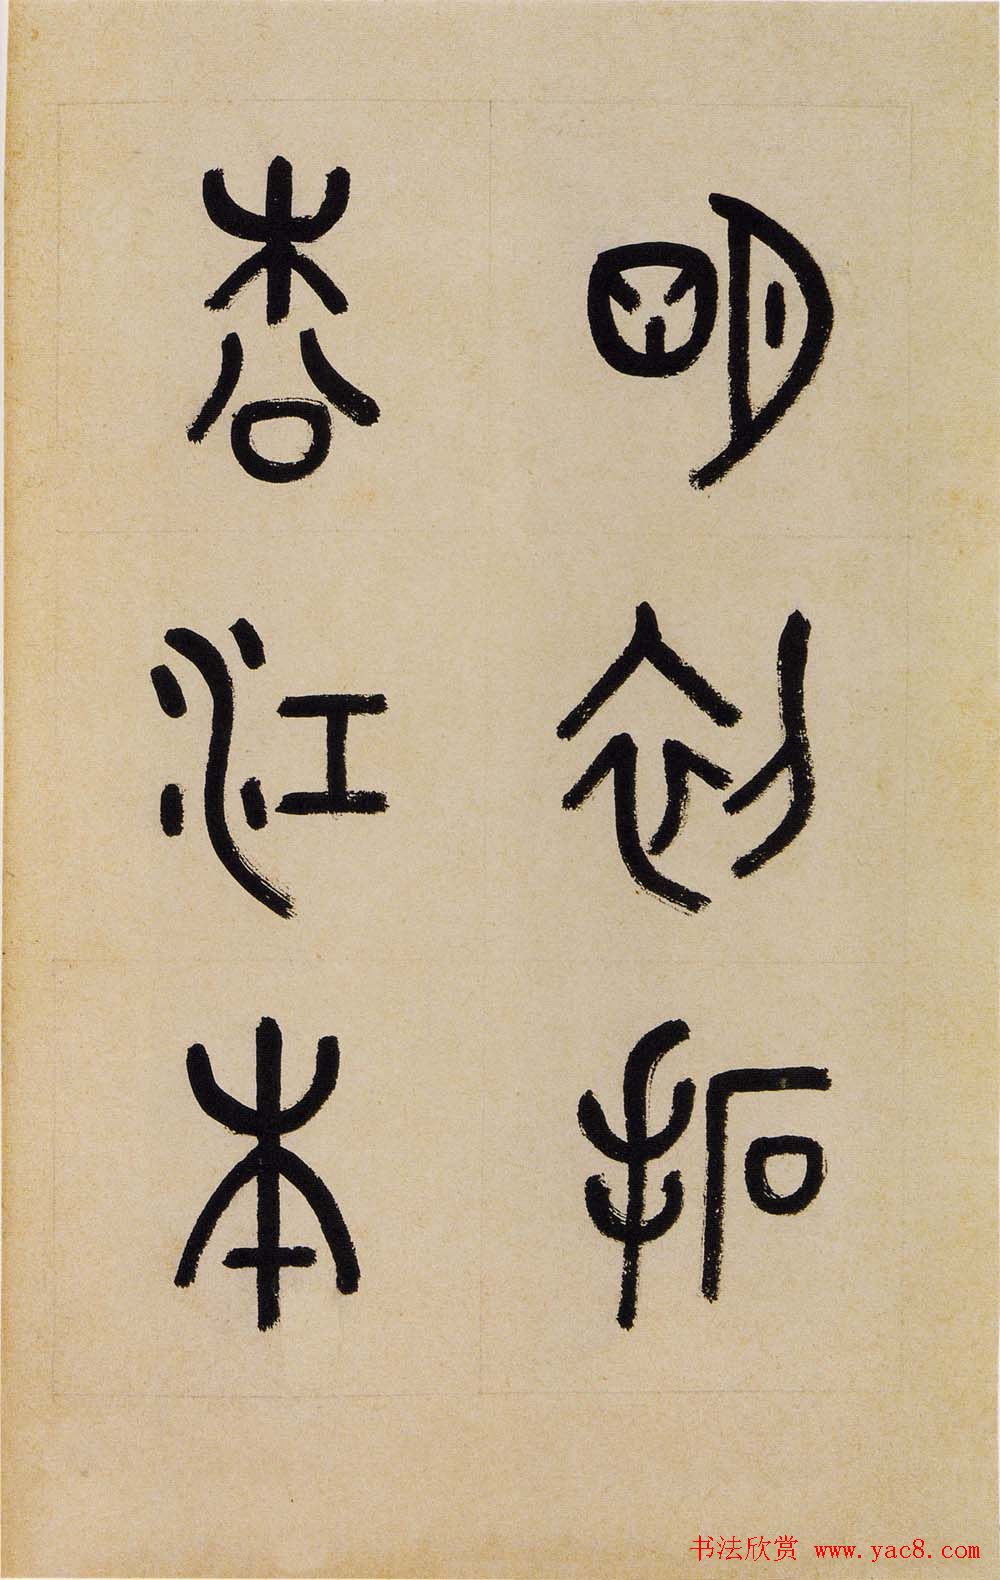 明初拓
松江本
书法欣赏 www.yac8.com